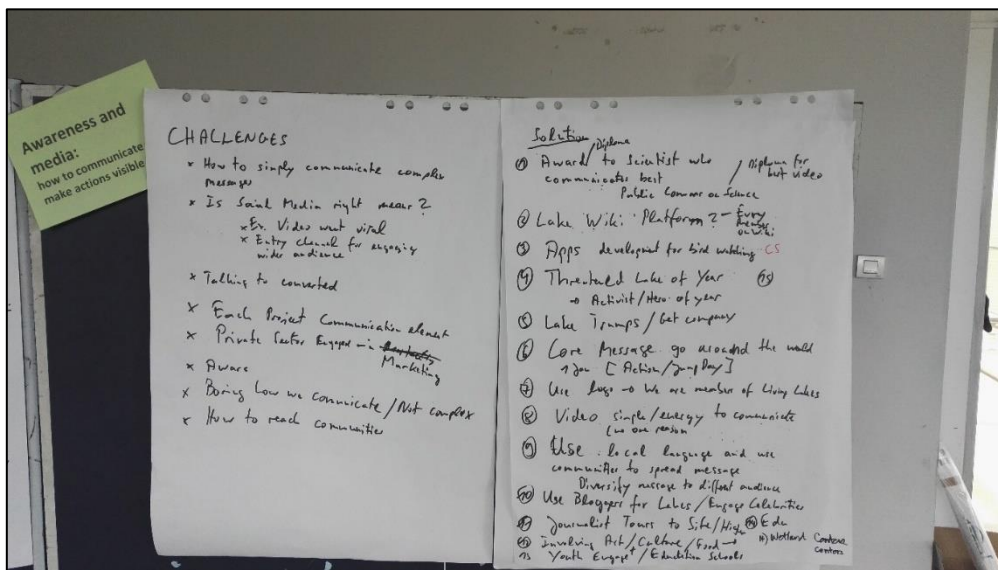 Awareness and
media:
how to communicate
make actions visible
CHALLENGES
x How to simply communicate complex
messages
x Is Social Media right means?
x Ex. Video went viral
x Entry channel for engaging
wider audience
x Talking to converted
x Each Project Communication element
x Private Sector Engaged - in
Marketing
x Aware
x Boring how we comunicate / Not complex
x How to reach communities
Solution
/ Diploma
① Award to Scientist who
communicates best
/ Diploma for
best video
Public
② Lake Wiki Platform? - Every
on Wiki
③ Apps development for bird watching CS
④ Threatened Lake of Year 15
→ Activist/Hero of year
⑤ Lake Trumps / Get company
⑥ Core Message go around the world
[Action/Jump Day]
⑦ Use logo → We are member of Living Lakes
⑧ Video simple/energy to communicate
one reason
⑨ Use local language and use
communities to spread message
Diversify message to different audience
⑩ Use Bloggers for Lakes / Engage Celebrities
Journalist Tours to Site / High Edu
Involving Art / Culture / Food →
Wetland
centers
13 Youth Engage / Education Schools